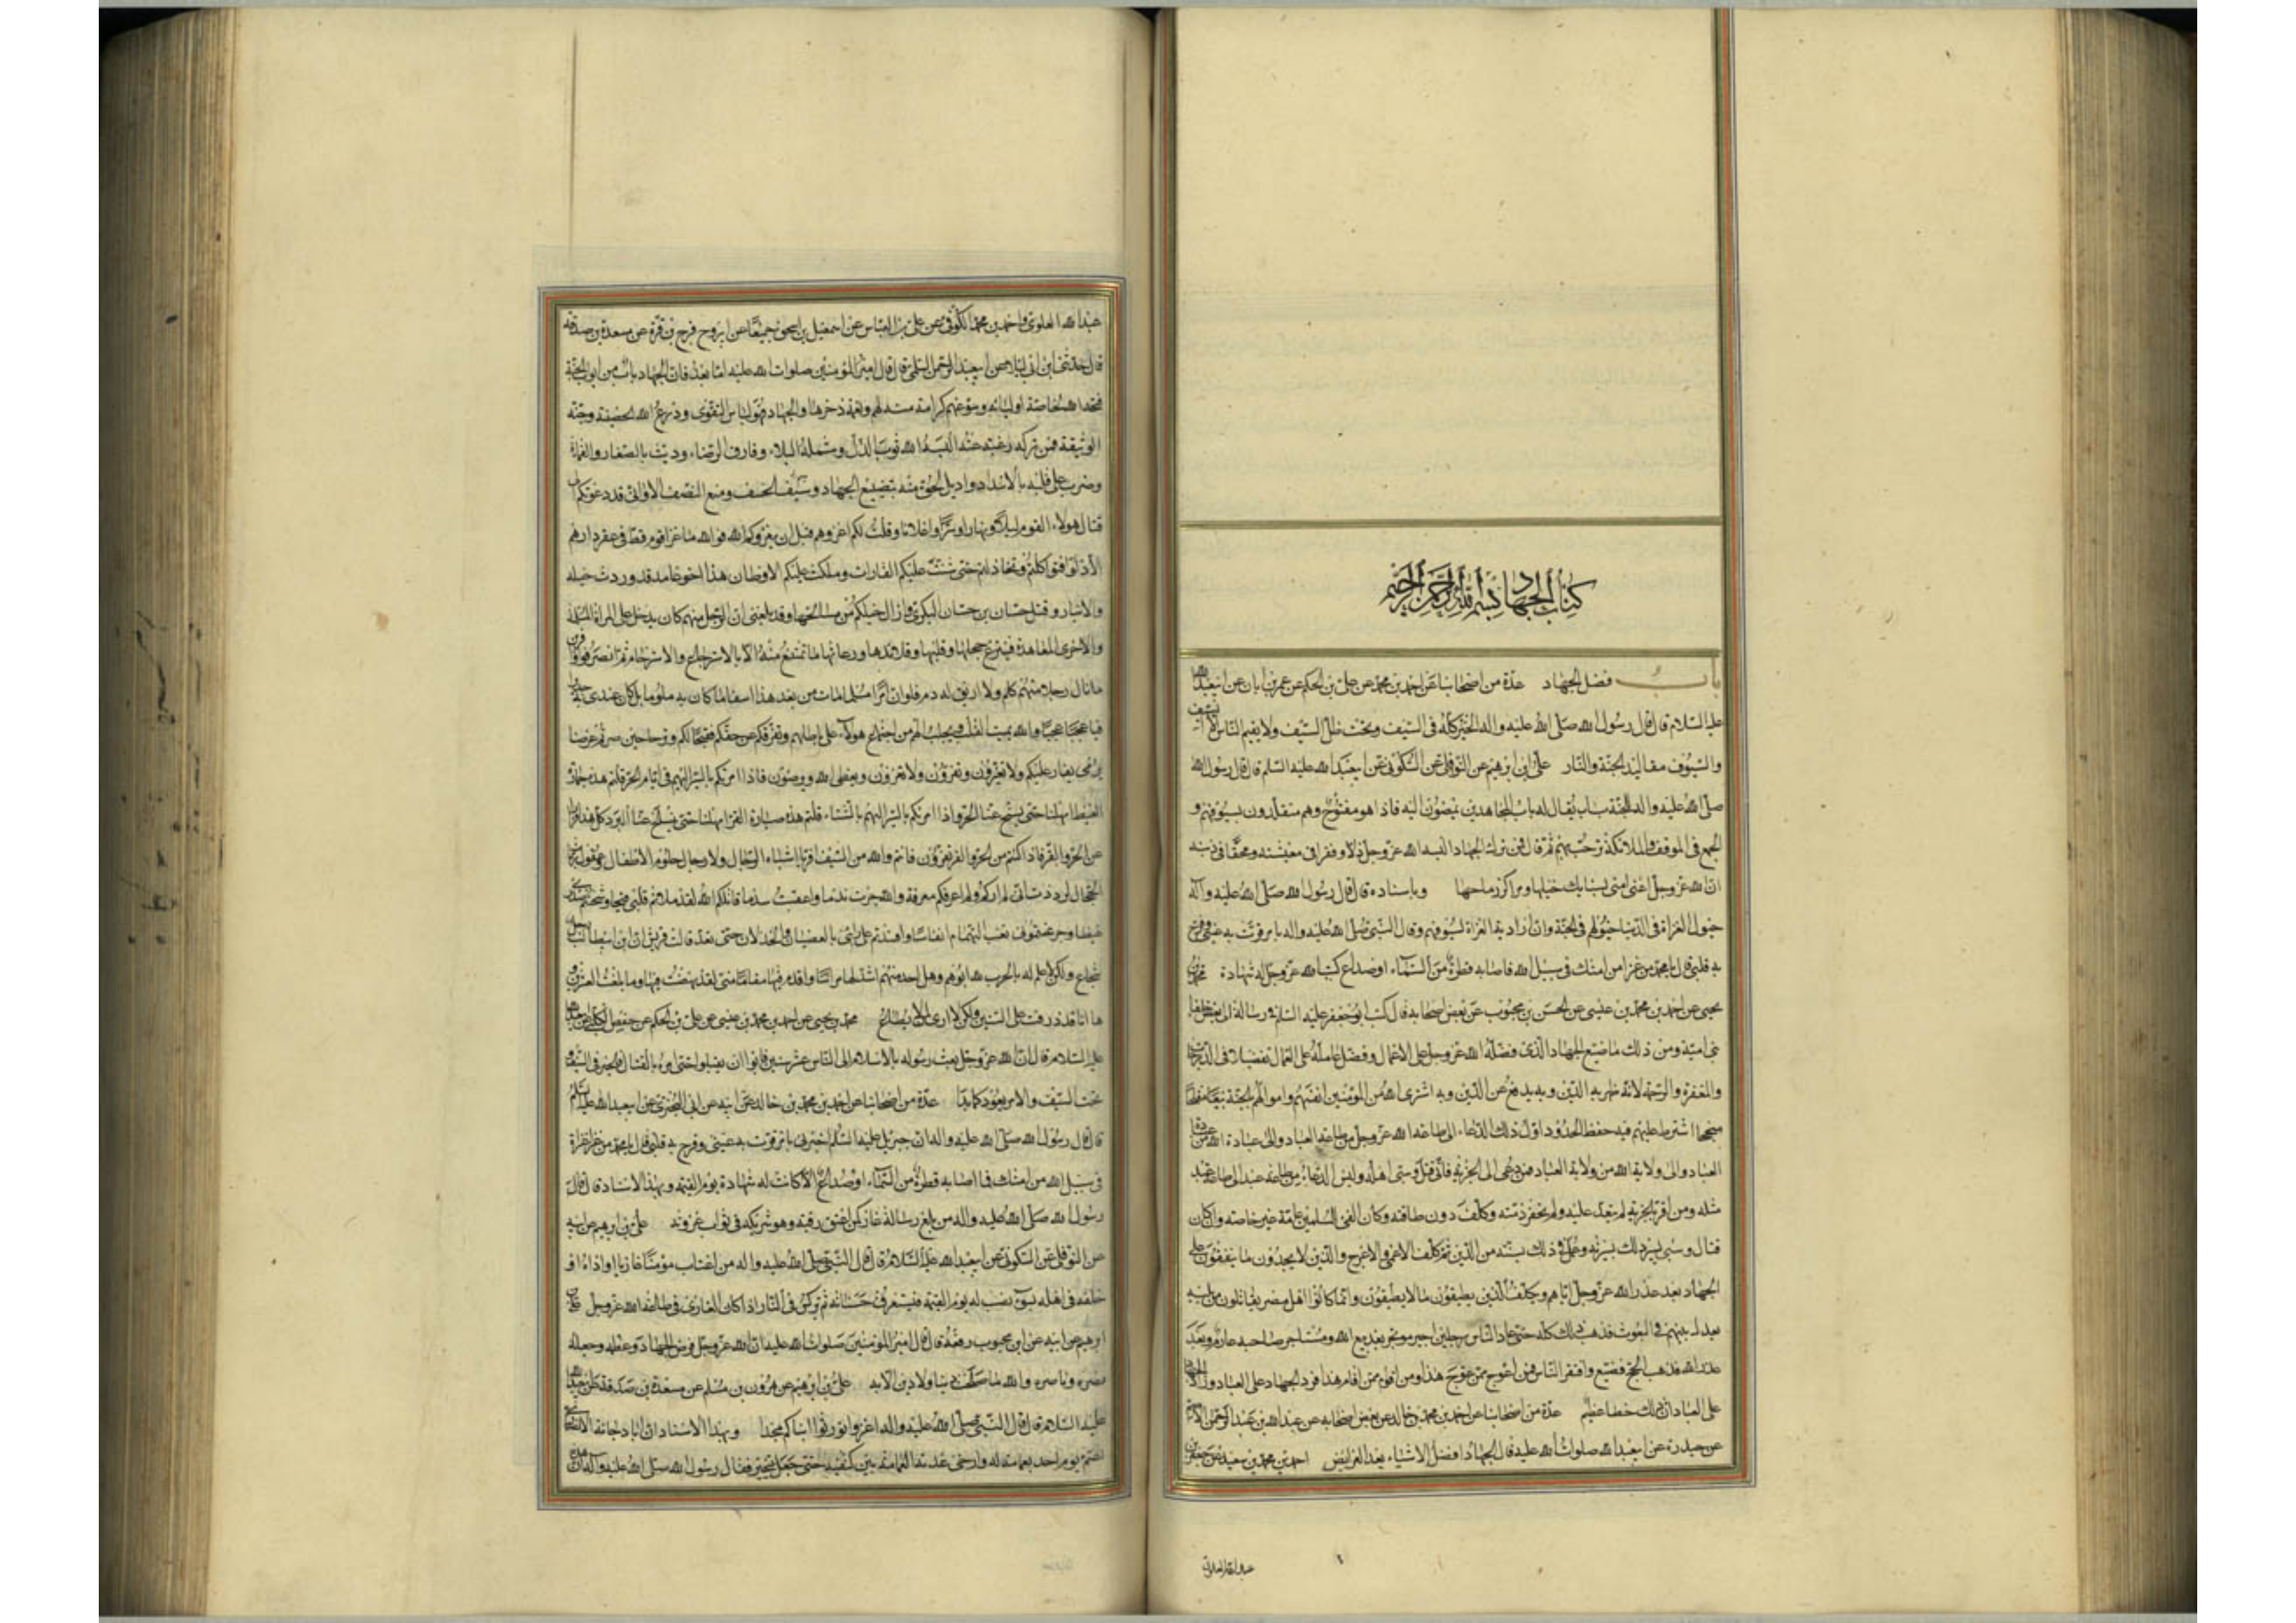 كتاب الجهاد بسم الله الرحمن الرحيم
باب فضل الجهاد عدة من اصحابنا عن احمد بن محمد عن علي بن الحكم عن عمر بن ابان عن ابيعبدالله
عليه السلام قال قال رسول الله صلى الله عليه واله الخير كله في السيف وتحت ظل السيف ولا يقيم الناس الا السيف
والسيوف مقاليد الجنة والنار علي بن ابرهيم عن النوفلي عن السكوني عن ابيعبدالله عليه السلم قال قال رسول الله
صلى الله عليه واله للجنة باب يقال له باب المجاهدين يمضون اليه فاذا هو مفتوح وهم متقلدون بسيوفهم و
الجمع في الموقف والملائكة ترحب بهم ثم قال فمن ترك الجهاد البسه الله عز وجل ذلا وفقرا في معيشته ومحقا في دينه
ان الله عز وجل اغنى امتي بسنابك خيلها ومراكز رماحها وباسناده قال قال رسول الله صلى الله عليه وآله
خيول الغزاة في الدنيا خيولهم في الجنة وان اردية الغزاة لسيوفهم وقال النبي صلى الله عليه واله
به قلبي قال يا محمد من غزا من امتك في سبيل الله فاصابه قطرة من السماء او صداع كتب الله عز وجل له شهادة محمد بن
يحيى عن احمد بن محمد بن عيسى عن الحسن بن محبوب عن بعض اصحابه قال كتب ابوجعفر عليه السلم في رسالة الى بعض خلفاء
بني امية ومن ذلك ما ضيع الجهاد الذي فضله الله عز وجل على الاعمال وفضل عامله على العمال تفضيلا في الدرجات
والمغفرة والرحمة لانه ظهر به الدين وبه يدفع عن الدين وبه اشترى الله من المؤمنين انفسهم واموالهم بالجنة بيعا مفلحا
منجحا اشترط عليهم فيه حفظ الحدود اول ذلك الدعاء الى طاعة الله عز وجل من طاعة العباد والى عبادة الله من عبادة
العباد والى ولاية الله من ولاية العباد فمن دعي الى الجزية فابى قتل وسبي اهله وليس الدعاء من طاعة عبد الى طاعة عبد
مثله ومن اقر بالجزية لم يتعد عليه ولم تخفر ذمته وكلف دون طاقته وكان الفئ للمسلمين عامة غير خاصة وان كان
قتال وسبي سير في ذلك بسيرته وعمل في ذلك بسنته من الدين ثم كلف الاعمى والاعرج والذين لا يجدون ما ينفقون على
الجهاد بعد عذر الله عز وجل اياهم ويكلف الذين يطيقون ما لا يطيقون وانما كانوا اهل مصر يقاتلون من يليه
يعدل بينهم في البعوث فذهب ذلك كله حتى عاد الناس رجلين اجير مؤتجر بعد بيع الله ومستاجر صاحبه غارم وبعد
عذر الله وذهب الحج فضيع وافتقر الناس فمن اعوج ممن عوج هذا ومن اقوم ممن اقام هذا فرد الجهاد على العباد وزاد الجهاد
على العباد ان ذلك خطأ عظيم عدة من اصحابنا عن احمد بن محمد بن خالد عن بعض اصحابه عن عبدالله بن عبدالرحمن الاصم
عن حيدرة عن ابيعبدالله صلوات الله عليه قال الجهاد افضل الاشياء بعد الفرائض احمد بن محمد بن سعيد عن جعفر بن
عبدالله العلوي
عبدالله العلوي واحمد بن محمد الكوفي عن علي بن العباس عن اسمعيل بن اسحق جميعا عن ابي روح فرج بن قرة عن مسعدة بن صدقة
قال حدثني ابن ابي ليلى عن ابيعبدالرحمن السلمي قال قال امير المؤمنين صلوات الله عليه اما بعد فان الجهاد باب من ابواب الجنة
فتحه الله لخاصة اوليائه وسوغهم كرامة منه لهم ونعمة ذخرها والجهاد هو لباس التقوى ودرع الله الحصينة وجنته
الوثيقة فمن تركه رغبة عنه البسه الله ثوب الذل وشمله البلاء وفارق الرضاء وديث بالصغار والقماءة
وضرب على قلبه بالاسداد واديل الحق منه بتضييع الجهاد وسيم الخسف ومنع النصف الا واني قد دعوتكم الى
قتال هولاء القوم ليلا ونهارا وسرا واعلانا وقلت لكم اغزوهم قبل ان يغزوكم فوالله ما غزا قوم قط في عقر دارهم
الا ذلوا فتواكلتم وتخاذلتم حتى شنت عليكم الغارات وملكت عليكم الاوطان هذا اخو غامد قد وردت خيله
الانبار وقتل حسان بن حسان البكري وازال خيلكم عن مسالحها وقد بلغني ان الرجل منهم كان يدخل على المراة المسلمة
والاخرى المعاهدة فينتزع حجلها وقلبها وقلائدها ورعاثها ما تمتنع منه الا بالاسترجاع والاسترحام ثم انصرفوا وافرين
ما نال رجلا منهم كلم ولا اريق له دم فلو ان امرا مسلما مات من بعد هذا اسفا ما كان به ملوما بل كان عندي به جديرا
فيا عجبا عجبا والله يميت القلب ويجلب الهم من اجتماع هولاء على باطلهم وتفرقكم عن حقكم فقبحا لكم وترحا حين صرتم غرضا
يرمى يغار عليكم ولا تغيرون وتغزون ولا تغزون ويعصى الله وترضون فاذا امرتكم بالسير اليهم في ايام الحر قلتم هذه حمارة
القيظ امهلنا حتى يسبخ عنا الحر واذا امرتكم بالسير اليهم بالشتاء قلتم هذه صبارة القر امهلنا حتى ينسلخ عنا البرد كل هذا فرارا
من الحر والقر فاذا كنتم من الحر والقر تفرون فانتم والله من السيف افر يا اشباه الرجال ولا رجال حلوم الاطفال وعقول ربات
الحجال لوددت اني لم اركم ولم اعرفكم معرفة والله جرت ندما واعقبت سدما قاتلكم الله لقد ملاتم قلبي قيحا وشحنتم صدري
غيظا وجرعتموني نغب التهمام انفاسا وافسدتم علي رايي بالعصيان والخذلان حتى لقد قالت قريش ان ابن ابيطالب رجل
شجاع ولكن لا علم له بالحرب لله ابوهم وهل احد منهم اشد لها مراسا واقدم فيها مقاما مني لقد نهضت فيها وما بلغت العشرين و
ها انا قد ذرفت على الستين ولكن لا راي لمن لا يطاع محمد بن يحيى عن احمد بن محمد بن عيسى عن علي بن الحكم
عليه السلام قال ان الله عز وجل بعث رسوله بالاسلام الى الناس عشر سنين فابوا ان يقبلوا حتى امره بالقتال فالخير في السيف و
تحت السيف والامر يعود كما بدا عدة من اصحابنا عن احمد بن محمد بن خالد عن ابيه عن ابي البختري عن ابيعبدالله عليه السلم
قال قال رسول الله صلى الله عليه واله ان جبريل عليه السلم اخبرني بامر قرت به عيني وفرح به قلبي قال يا محمد من غزا غزاة
في سبيل الله من امتك فما اصابه قطرة من السماء او صداع الا كانت له شهادة يوم القيمة وبهذا الاسناد قال قال
رسول الله صلى الله عليه واله من بلغ رسالة غاز كمن اعتق رقبة وهو شريكه في ثواب غزوته علي بن ابرهيم عن ابيه
عن النوفلي عن السكوني عن ابيعبدالله عليه السلام قال قال النبي صلى الله عليه واله من اغتاب مؤمنا غازيا او اذاه او
خلفه في اهله بسوء نصب له يوم القيمة فيستغرق حسناته ثم يركس في النار اذا كان الغازي في طاعة الله عز وجل علي بن
ابرهيم عن ابيه عن ابن محبوب رفعه قال قال امير المؤمنين صلوات الله عليه ان الله عز وجل فرض الجهاد وعظمه وجعله
نصره وناصره والله ما صلحت دنيا ولا دين الا به علي بن ابرهيم عن هرون بن مسلم عن مسعدة بن صدقة عن ابيعبدالله
عليه السلام قال قال النبي صلى الله عليه واله اغزوا تورثوا ابناءكم مجدا وبهذا الاسناد ان ابا دجانة الانصاري
اعتم يوم احد بعمامة له وارخى عذبة العمامة بين كتفيه حتى جعل يتبختر فقال رسول الله صلى الله عليه وآله ان هذه